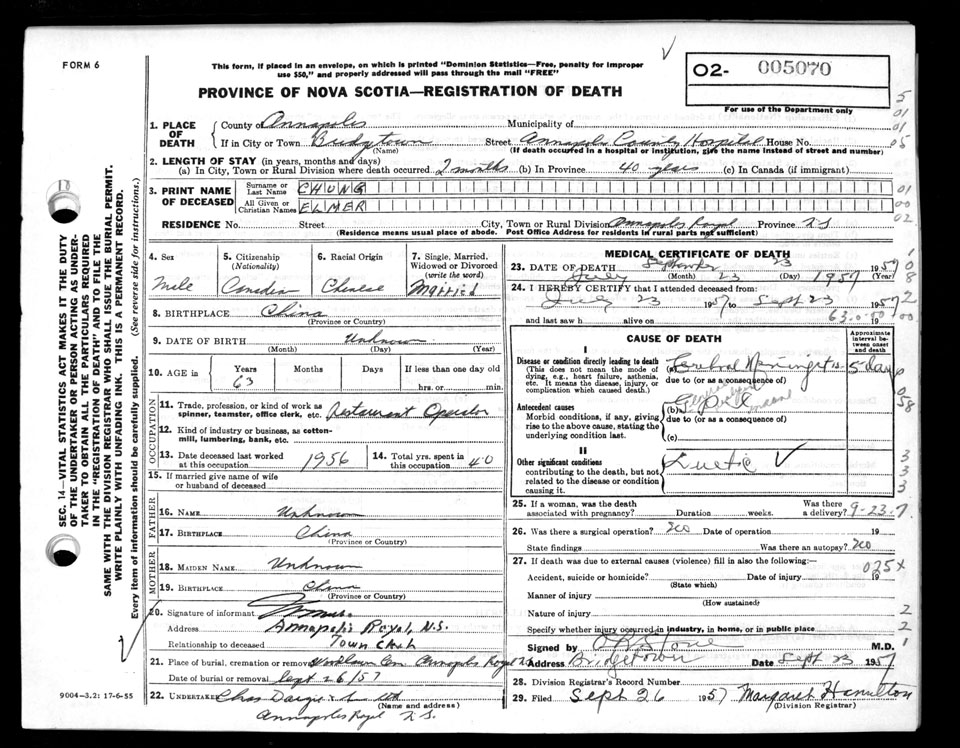 FORM 6
This form, if placed in an envelope, on which is printed "Dominion Statistics—Free, penalty for improper
use $50," and properly addressed will pass through the mail "FREE"
02- 005070
For use of the Department only
PROVINCE OF NOVA SCOTIA—REGISTRATION OF DEATH
1. PLACE OF DEATH
County of Annapolis Municipality of
If in City or Town Bridgetown Street Annapolis County Hospital House No.
(Name) (If death occurred in a hospital or institution, give the name instead of street and number)
2. LENGTH OF STAY (in years, months and days)
(a) In City, Town or Rural Division where death occurred 2 months (b) In Province 40 years (c) In Canada (if immigrant)
3. PRINT NAME OF DECEASED
Surname or Last Name CHUNG
All Given or Christian Names ELMER
RESIDENCE No. Street City, Town or Rural Division Annapolis Royal Province N.S
(Residence means usual place of abode. Post Office Address for residents in rural parts not sufficient)
4. Sex
Male
5. Citizenship
(Nationality)
Canadian
6. Racial Origin
Chinese
7. Single, Married, Widowed or Divorced
(write the word)
Married
8. BIRTHPLACE China
(Province or Country)
9. DATE OF BIRTH Unknown
(Month) (Day) (Year)
10. AGE in Years Months Days If less than one day old
63 hrs. or min.
OCCUPATION
11. Trade, profession, or kind of work as
spinner, teamster, office clerk, etc. Restaurant Operator
12. Kind of industry or business, as cotton-
mill, lumbering, bank, etc.
13. Date deceased last worked
at this occupation 1956
14. Total yrs. spent in
this occupation 40
15. If married give name of wife
or husband of deceased
FATHER
16. NAME Unknown
17. BIRTHPLACE China
(Province or Country)
MOTHER
18. MAIDEN NAME Unknown
19. BIRTHPLACE China
(Province or Country)
20. Signature of informant
Address Annapolis Royal, N.S.
Relationship to deceased Town Clerk
21. Place of burial, cremation or removal Woodlawn Cem Annapolis Royal
Date of burial or removal Sept 26/57
22. UNDERTAKER Chas Dargie & Ltd
(Name and address)
Annapolis Royal N.S.
MEDICAL CERTIFICATE OF DEATH
23. DATE OF DEATH September 23 1957
July 23 1957
(Month) (Day) (Year)
24. I HEREBY CERTIFY that I attended deceased from:
July 23 1957 to Sept 23 1957
and last saw h alive on 19
63-0-00
CAUSE OF DEATH
Approximate interval between onset and death
I
Disease or condition directly leading to death
(This does not mean the mode of
dying, e.g., heart failure, asthenia,
etc. It means the disease, injury, or
complication which caused death.)
(a) Cerebral Meningitis 5 days
due to (or as a consequence of)
Antecedent causes
Morbid conditions, if any, giving
rise to the above cause, stating the
underlying condition last.
(b) G.P.I.
due to (or as a consequence of)
(c)
II
Other significant conditions
contributing to the death, but not
related to the disease or condition
causing it.
Luetic
25. If a woman, was the death
associated with pregnancy? Duration weeks. Was there a delivery?
9-23.7.
26. Was there a surgical operation? No Date of operation 19
State findings Was there an autopsy? No
27. If death was due to external causes (violence) fill in also the following:—
025x
Accident, suicide or homicide? Date of injury 19
(State which)
Manner of injury
(How sustained)
Nature of injury
Specify whether injury occurred in industry, in home, or in public place
Signed by Stone M.D.
Address Bridgetown Date Sept 23 1957
28. Division Registrar's Record Number
29. Filed Sept 26 1957 Margaret Hamilton
(Division Registrar)
5
01
01
05
01
00
02
6
058
3
3
3
2
2
1
SEC. 14—VITAL STATISTICS ACT MAKES IT THE DUTY
OF THE UNDERTAKER OR PERSON ACTING AS UNDER-
TAKER TO OBTAIN ALL THE PARTICULARS REQUIRED
IN THE "REGISTRATION OF DEATH" AND TO FILE THE
SAME WITH THE DIVISION REGISTRAR WHO SHALL ISSUE THE BURIAL PERMIT.
WRITE PLAINLY WITH UNFADING INK. THIS IS A PERMANENT RECORD.
Every item of information should be carefully supplied. (See reverse side for instructions.)
9004—3.2: 17-6-55